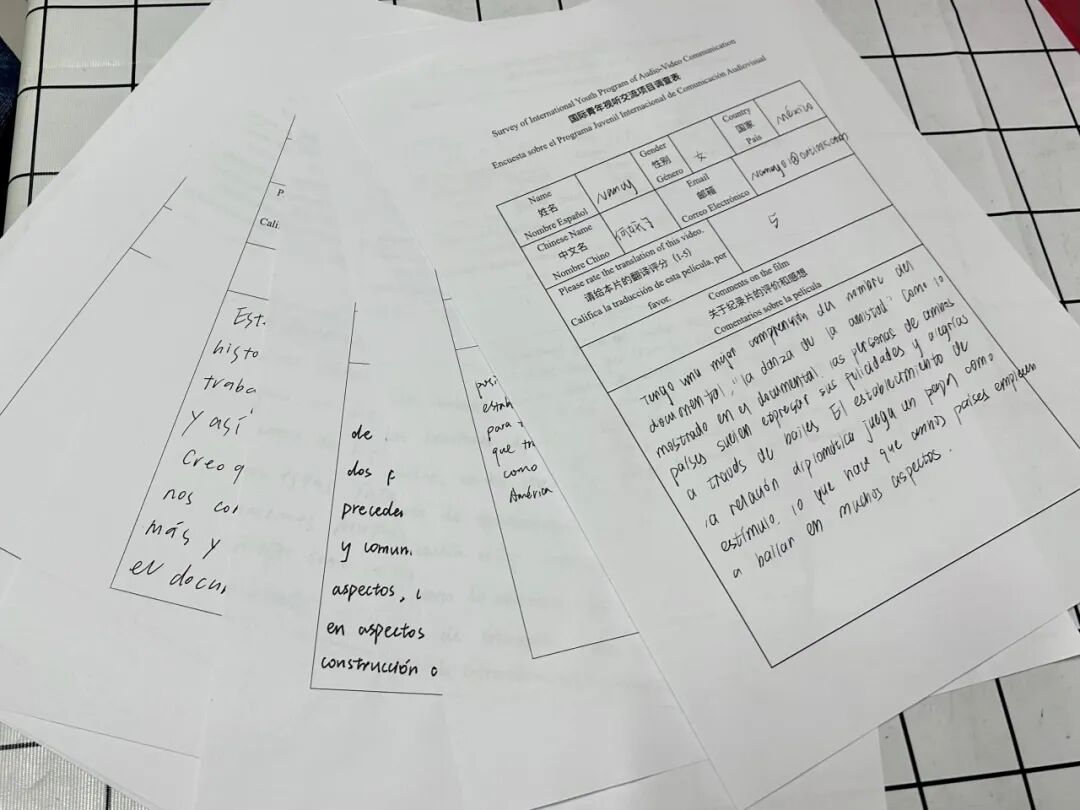 Survey of International Youth Program of Audio-Video Communication
国际青年视听交流项目调查表
Encuesta sobre el Programa Juvenil Internacional de Comunicación Audiovisual
Name
姓名
Nombre Español
Gender
性别
Género
女
Country
国家
País
México
Chinese Name
中文名
Nombre Chino
Email
邮箱
Correo Electrónico
Please rate the translation of this video.
请给本片的翻译评分（1-5）
Califica la traducción de esta película, por
favor.
5
Comments on the film
关于纪录片的评价和感想
Comentarios sobre la película
Tengo una mejor comprensión del nombre del
documental, "la danza de la amistad". Como lo
mostrado en el documental, las personas de ambos
países suelen expresar sus felicidades y alegrías
a través de bailes. El establecimiento de
la relación diplomática juega un papel como
estímulo, lo que hace que ambos países empiecen
a bailar en muchos aspectos.
posi
estab
para
que tr
como
América
de
dos p
preceder
y comun
aspectos,
en aspectos
construcción
P
Cali
Est
histo
traba
y así
Creo q
nos con
más y
el docu